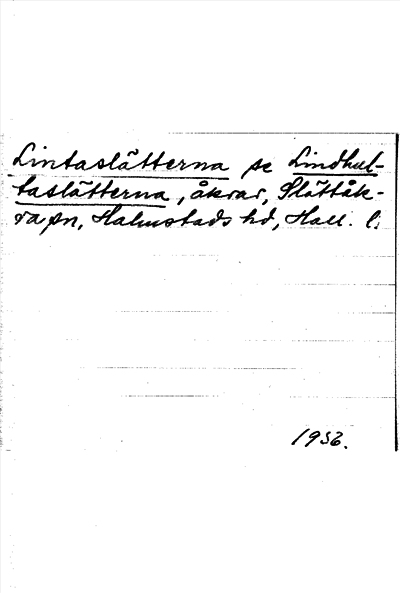 Lintaslätterna se Lindhul-
taslätterna, åkrar, Slättåk-
ra sn, Halmstads hd, Hall. l.
1932.